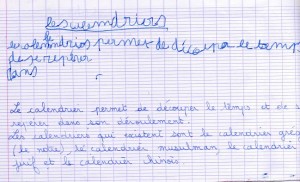 les calendriers
le
les calendrios permet de découpa le temps
de se repérer
dans
Le calendrier permet de découper le temps et de s
repérer dans son déroulement.
Les calendriers qui existent sont le calendrier grég
(le notre), le calendrier musulman, le calendrier
juif et le calendrier chinois.